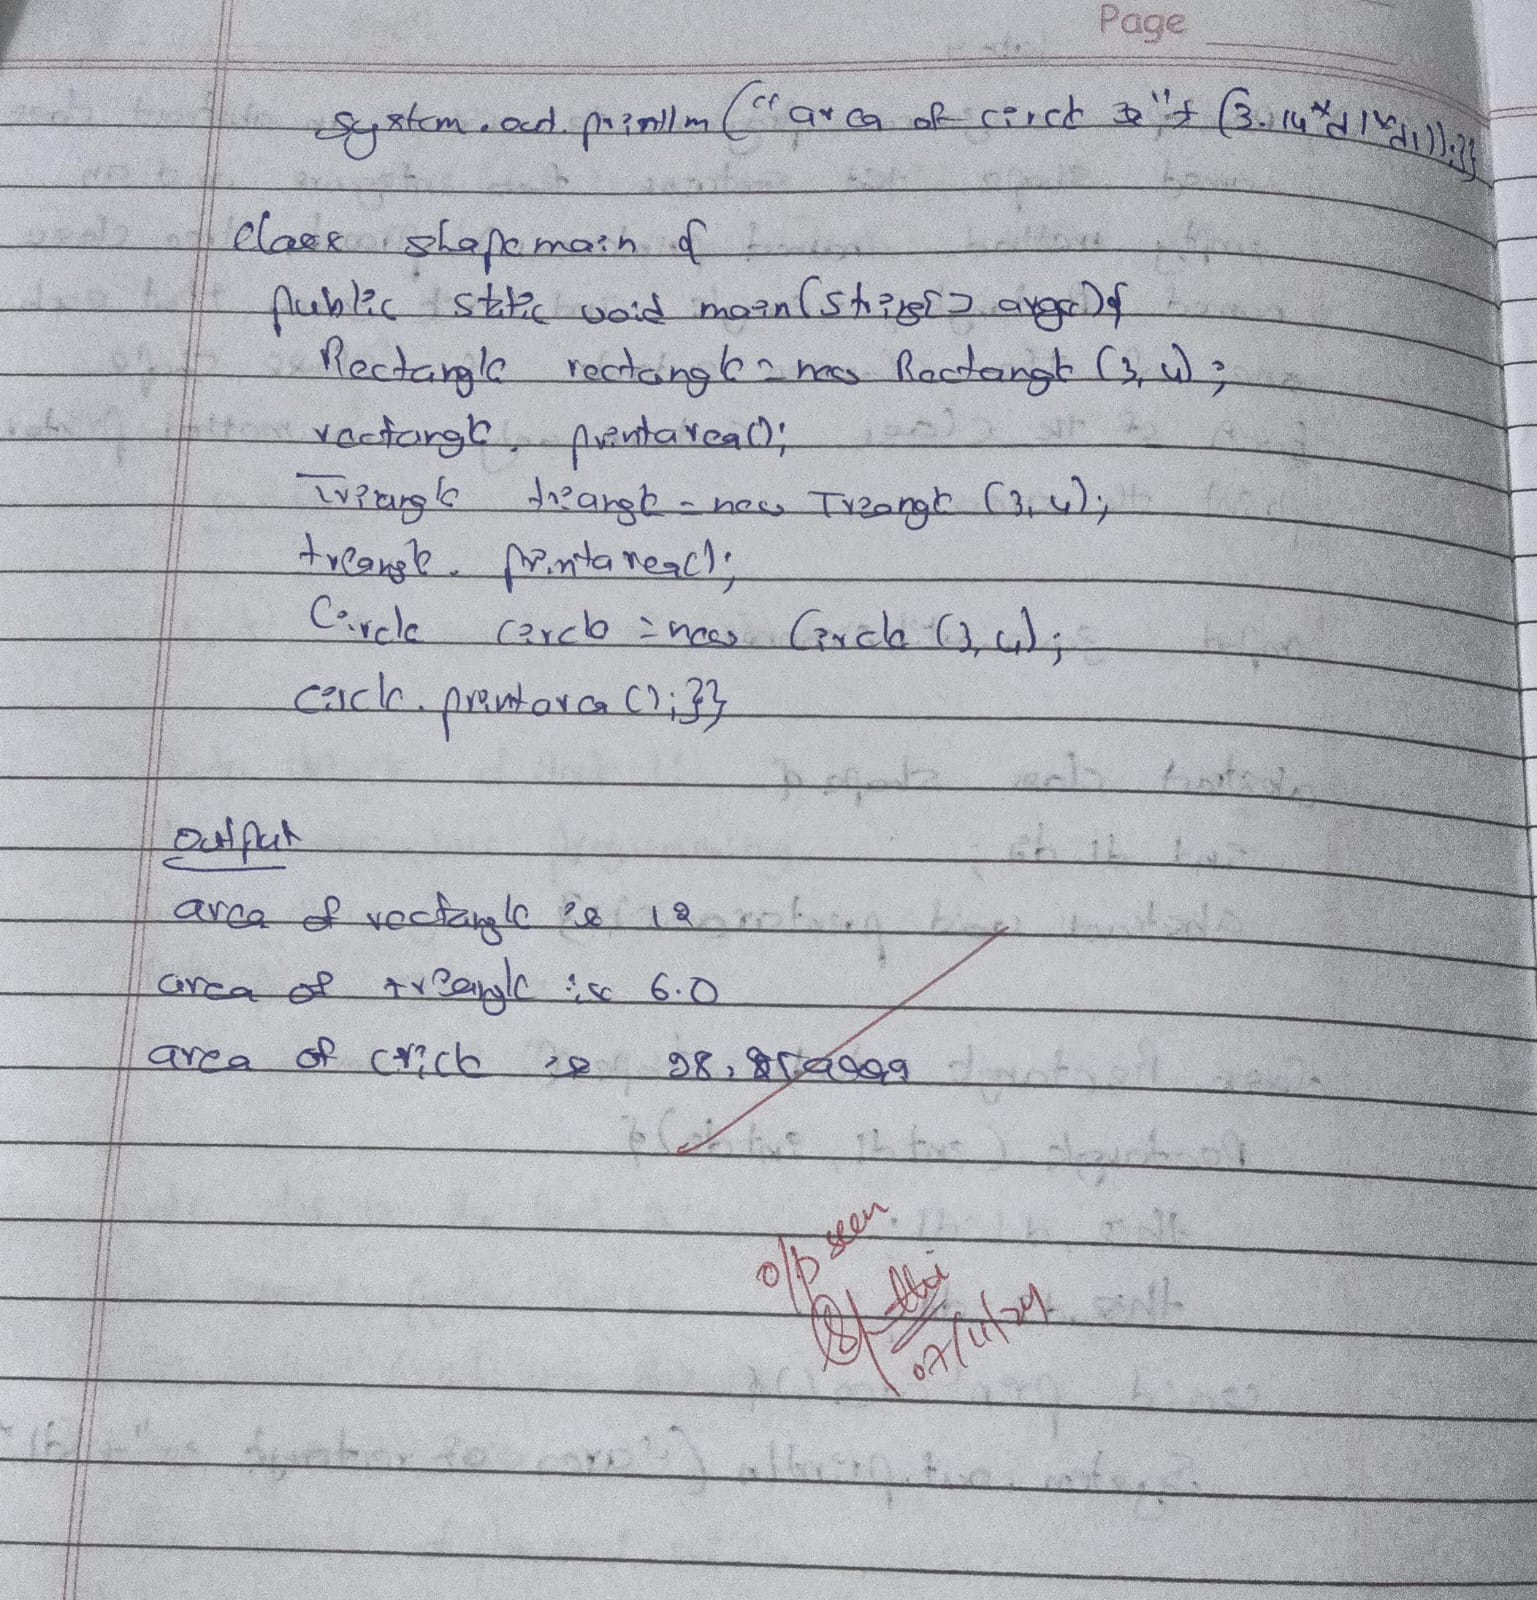 Page
System.out.println("area of circle is"+(3.14*d1*d1));}}
class shapemain {
public static void main(String[] args){
Rectangle rectangle = new Rectangle (3,4);
rectangle. printarea();
Triangle triangle = new Triangle (3,4);
triangle. printarea();
Circle circle = new Circle (3,4);
circle. printarea();}}
output
area of rectangle is 12
area of triangle is 6.0
area of circle is 28.259999
o/p seen
07/11/24